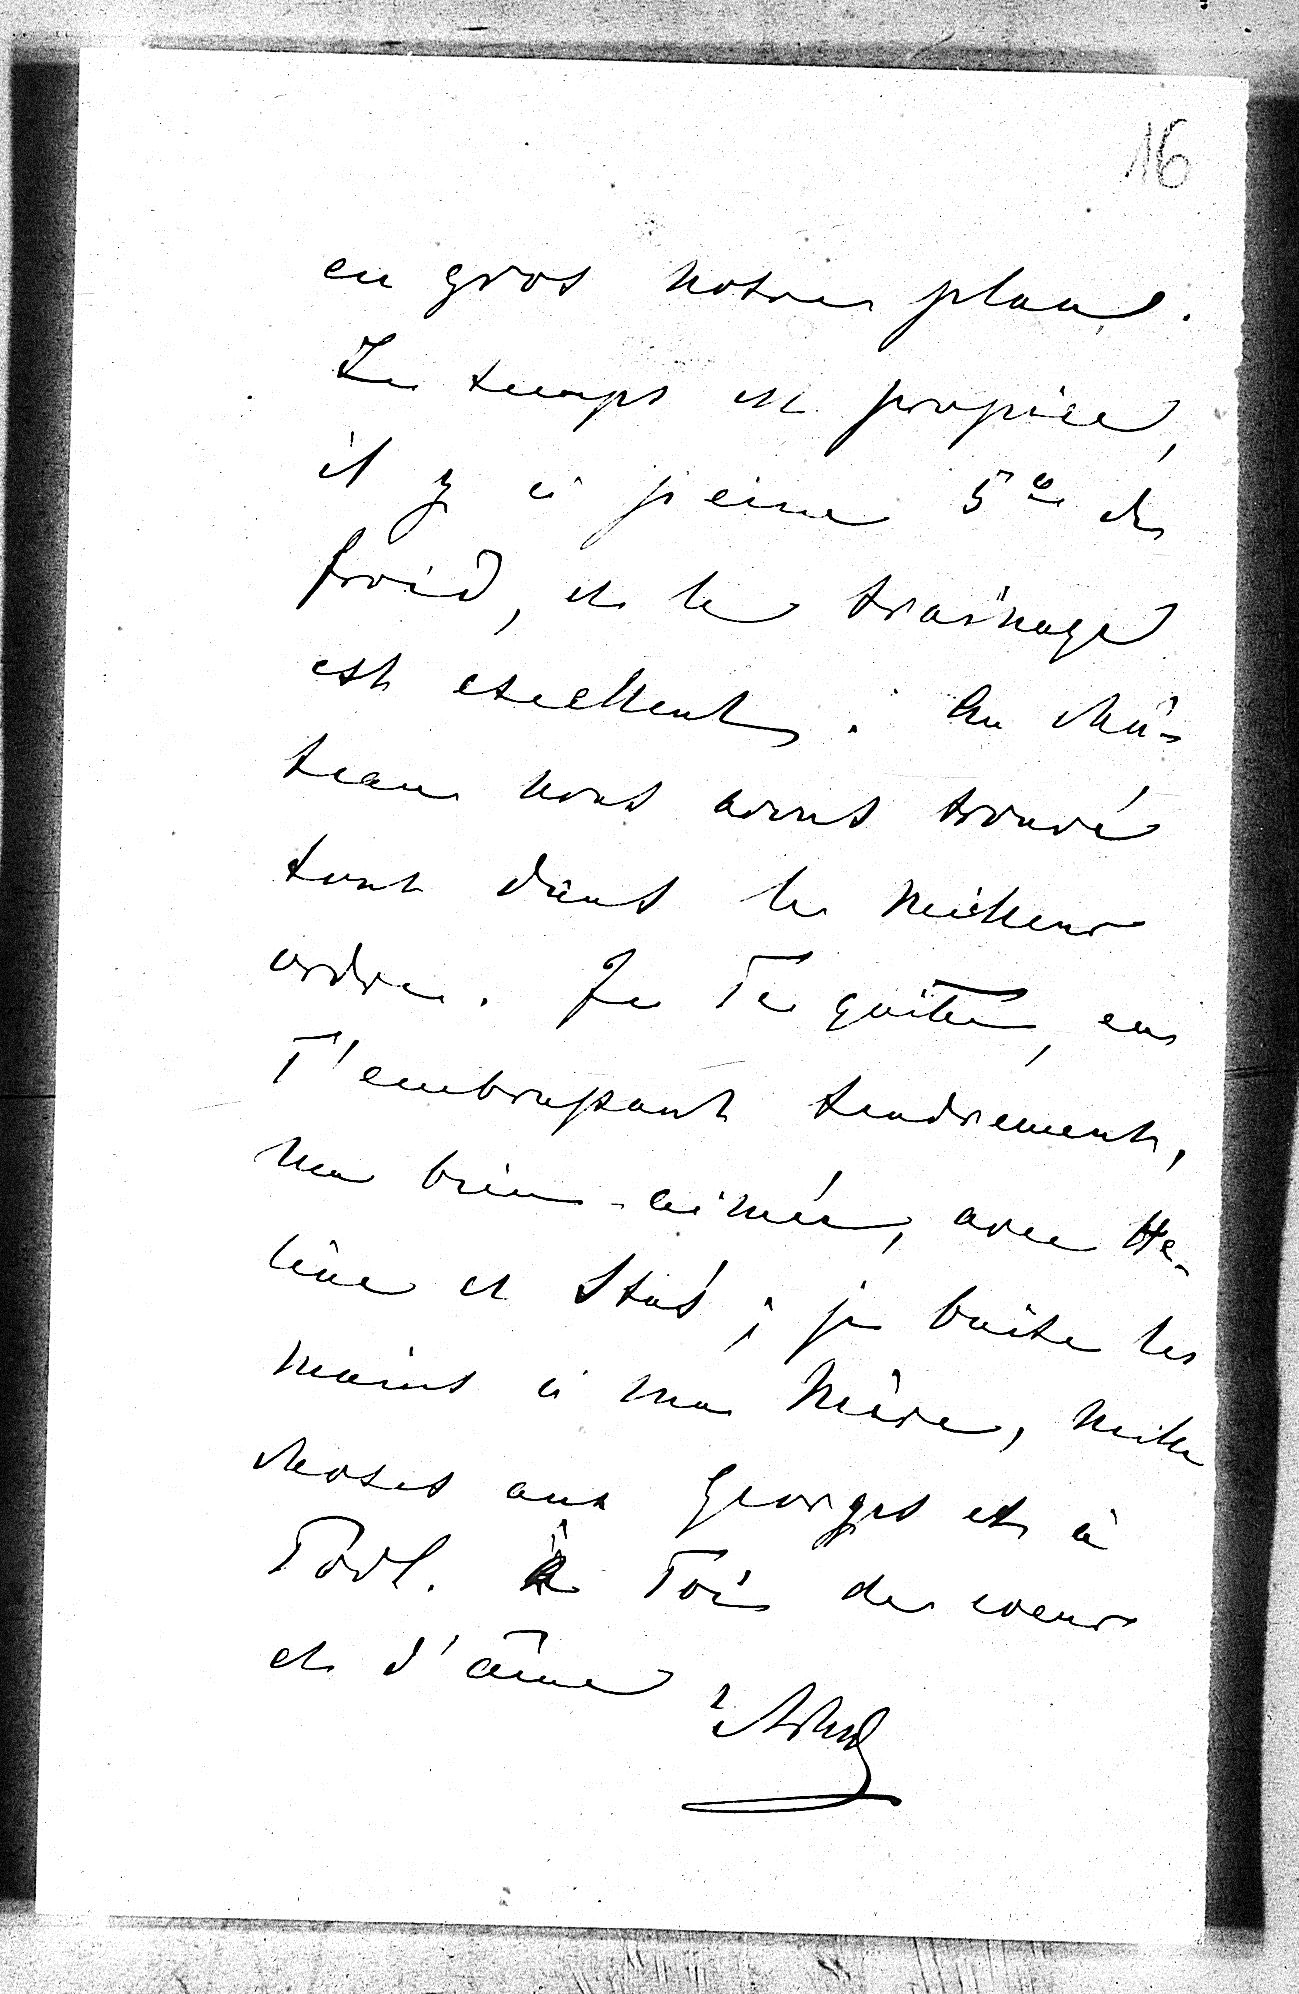 16
en gros notre plan.
Le temps est propice,
il y a à peine 5° de
froid, et le traînage
est excellent. Au châ-
teau nous avons trouvé
tout dans le meilleur
ordre. Je Te quitte, en
T'embrassant tendrement,
ma bien-aimée, avec Hé-
lène et Staś; je baise les
mains à ma Mère, mille
choses aux Georges et à
Podl. à Toi de coeur
et d'âme